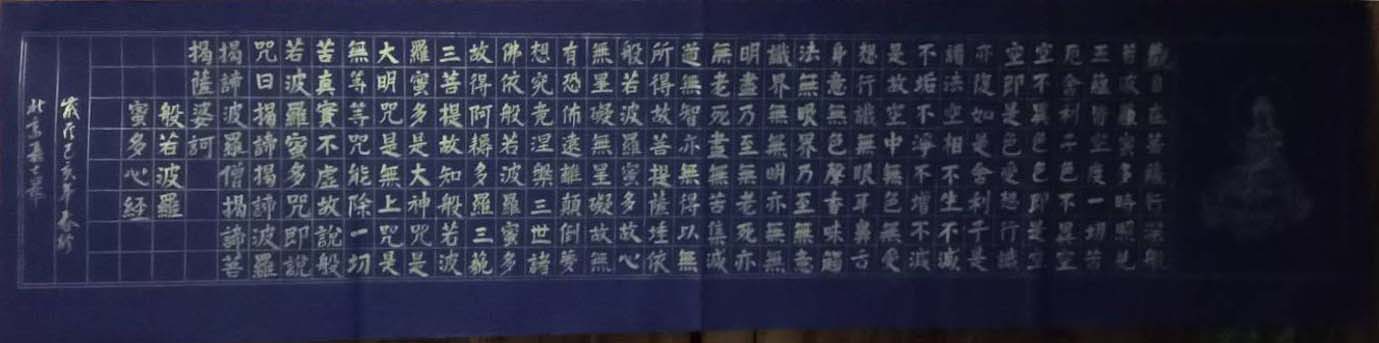 觀自在菩薩行深般
若波羅蜜多時照見
五蘊皆空度一切苦
厄舍利子色不異空
空不異色色即是空
空即是色受想行識
亦復如是舍利子是
諸法空相不生不滅
不垢不淨不增不減
是故空中無色無受
想行識無眼耳鼻舌
身意無色聲香味觸
法無眼界乃至無意
識界無無明亦無無
明盡乃至無老死亦
無老死盡無苦集滅
道無智亦無得以無
所得故菩提薩埵依
般若波羅蜜多故心
無罣礙無罣礙故無
有恐怖遠離顛倒夢
想究竟涅槃三世諸
佛依般若波羅蜜多
故得阿耨多羅三藐
三菩提故知般若波
羅蜜多是大神咒是
大明咒是無上咒是
無等等咒能除一切
苦真實不虛故說般
若波羅蜜多咒即說
咒曰揭諦揭諦波羅
揭諦波羅僧揭諦菩
揭薩婆訶
般若波羅
蜜多心経
歲在己亥年春